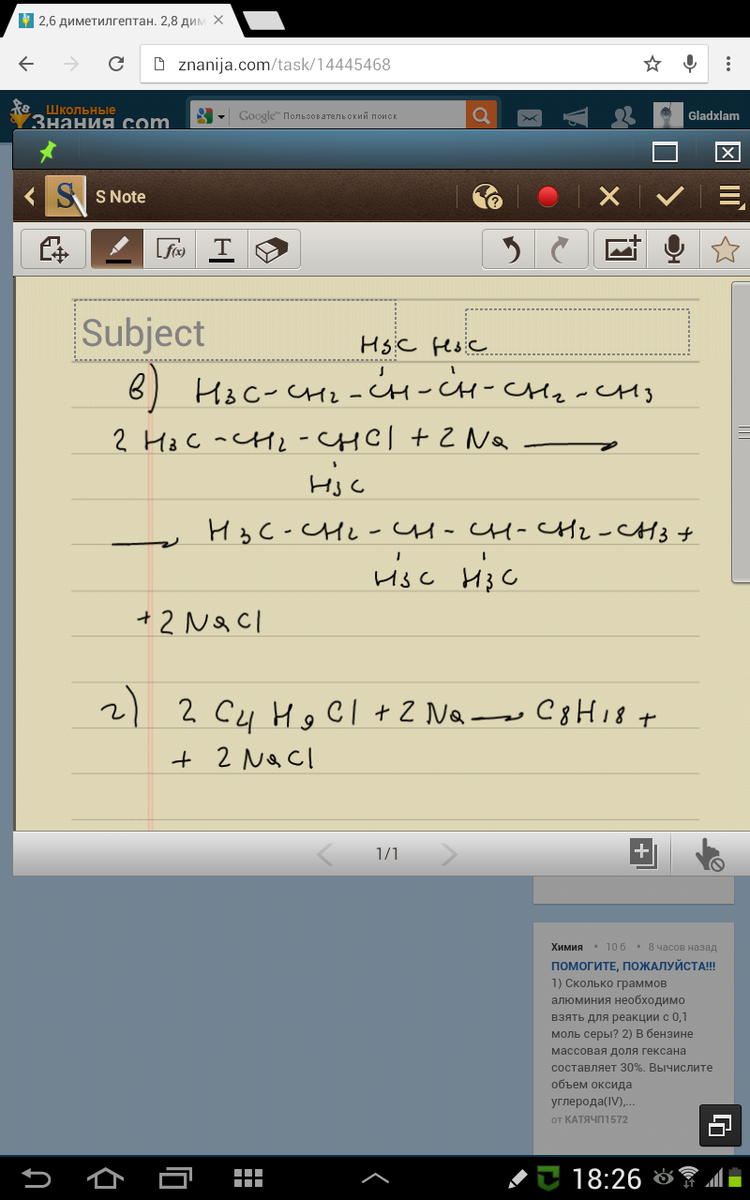 2,6 диметилгептан. 2,8 дим
znanija.com/task/14445468
Школьные
Знания.com
Google™ Пользовательский поиск
Gladxlam
S Note
f(x)
T
Subject
H3C H3C
в) H3C-CH2-CH-CH-CH2-CH3
2 H3C-CH2-CHCl + 2 Na ⟶
H3C
⟶ H3C-CH2-CH-CH-CH2-CH3 +
H3C H3C
+ 2 NaCl
г) 2 C4H9Cl + 2 Na ⟶ C8H18 +
+ 2 NaCl
1/1
Химия • 10 б • 8 часов назад
ПОМОГИТЕ, ПОЖАЛУЙСТА!!!
1) Сколько граммов
алюминия необходимо
взять для реакции с 0,1
моль серы? 2) В бензине
массовая доля гексана
составляет 30%. Вычислите
объем оксида
углерода(IV),...
от КАТЯЧП1572
18:26